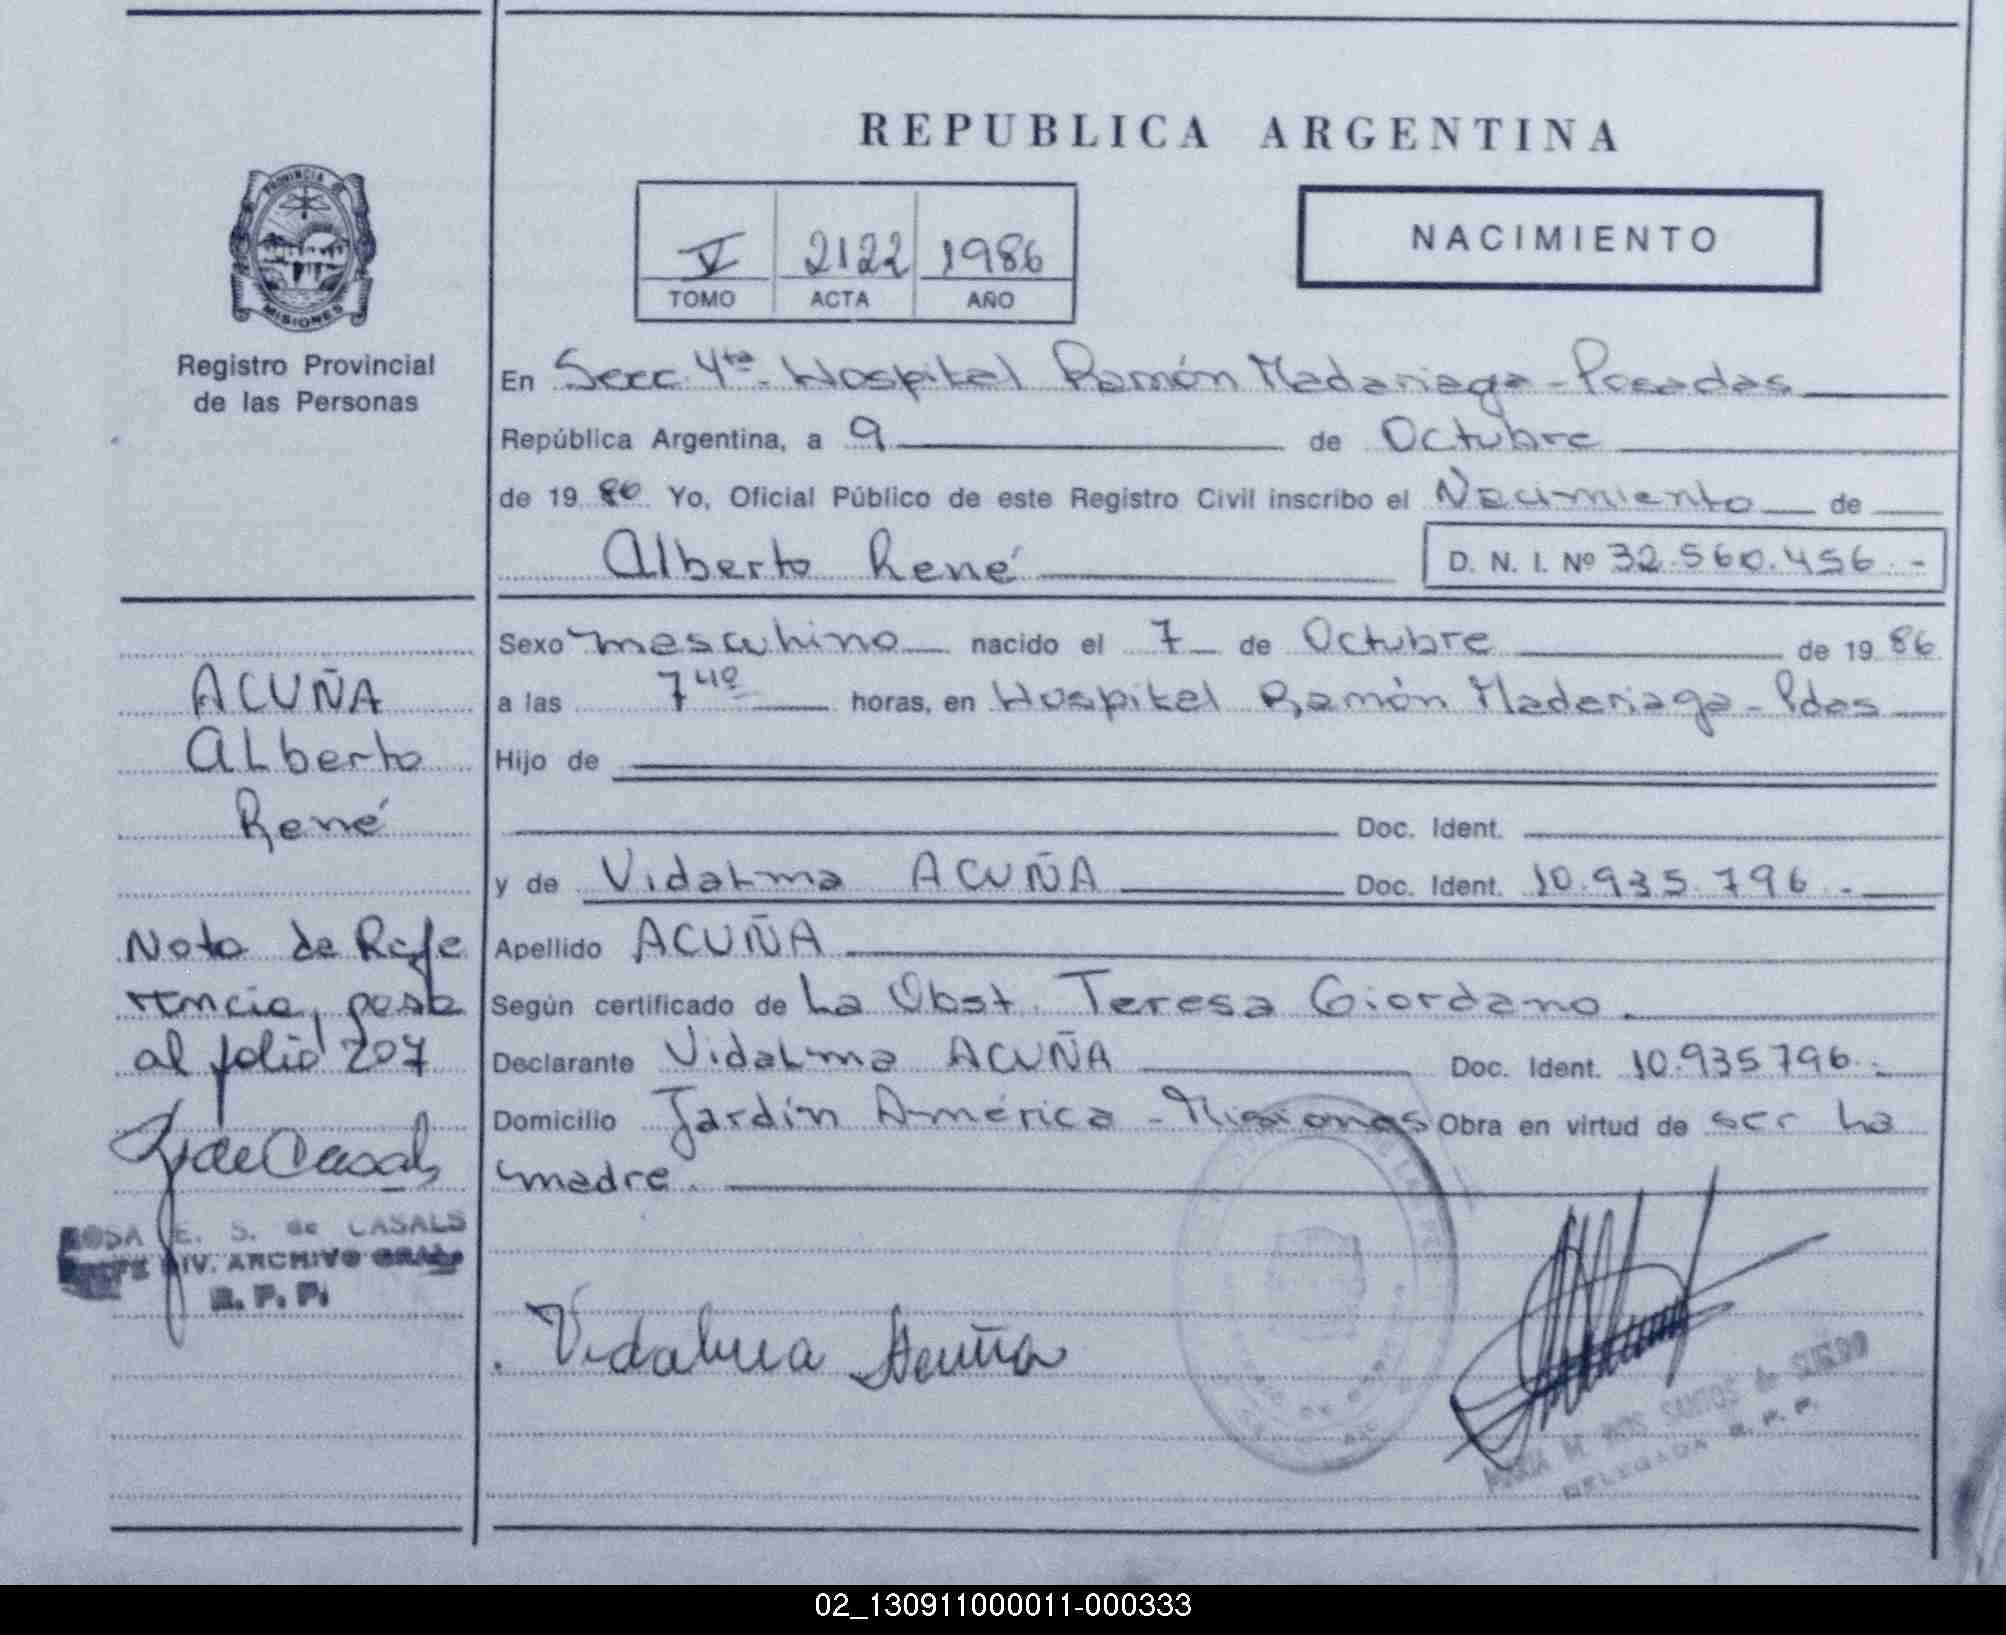 REPUBLICA ARGENTINA
PROVINCIA DE
MISIONES
Registro Provincial
de las Personas
V 2122 1986
TOMO ACTA AÑO
NACIMIENTO
En Secc. 4ta. Hospital Ramón Madariaga - Posadas
República Argentina, a 9 de Octubre
de 19 86 Yo, Oficial Público de este Registro Civil inscribo el Nacimiento de
Alberto René D. N. I. Nº 32.560.456.-
Sexo masculino nacido el 7 de Octubre de 19 86
a las 7 40 horas, en Hospital Ramón Madariaga - Pdas
Hijo de
Doc. Ident.
y de Vidalma ACUÑA Doc. Ident. 10.935.796.-
Apellido ACUÑA
Según certificado de La Obst. Teresa Giordano
Declarante Vidalma ACUÑA Doc. Ident. 10.935796.-
Domicilio Jardín América - Misiones Obra en virtud de ser la
madre.
Vidalma Acuña
MARIA M. DOS SANTOS de
DELEGADA R. P. P.
ACUÑA
Alberto
René
Nota de Refe
rencia, pasa
al folio 207
ROSA E. S. de CASALS
DIV. ARCHIVO GRAL.
R. P. P.
02_130911000011-000333